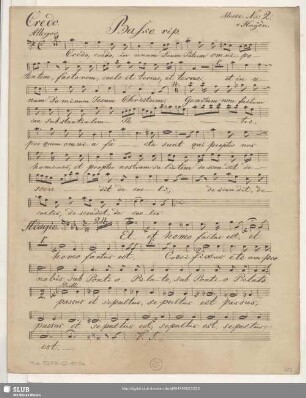 Credo.
Basso rip.
Messe No. 2.
v. Haydn.
Allegro
Credo, credo, in unum Deum Patrem omni po-
tentem, factorem, coeli et terrae, et terrae, et in u-
num Dominum Jesum Christum,
con substantialem Pa tris,
per quem omnia fa cta sunt qui propter nos
homines, et propter nostram salutem descendit de-
scen dit de coe lis, descendit, de
coelis, descendit, de coe lis
Adagio
Et, et homo factus est, et
homo factus est, Cruci fixus eti am pro
nobis sub Ponti o Pilato, sub Ponti o Pilato
passus et sepultus, sepultus est passus,
passus et sepultus est, sepultus est, sepultus
est.
V. S.
SLUB